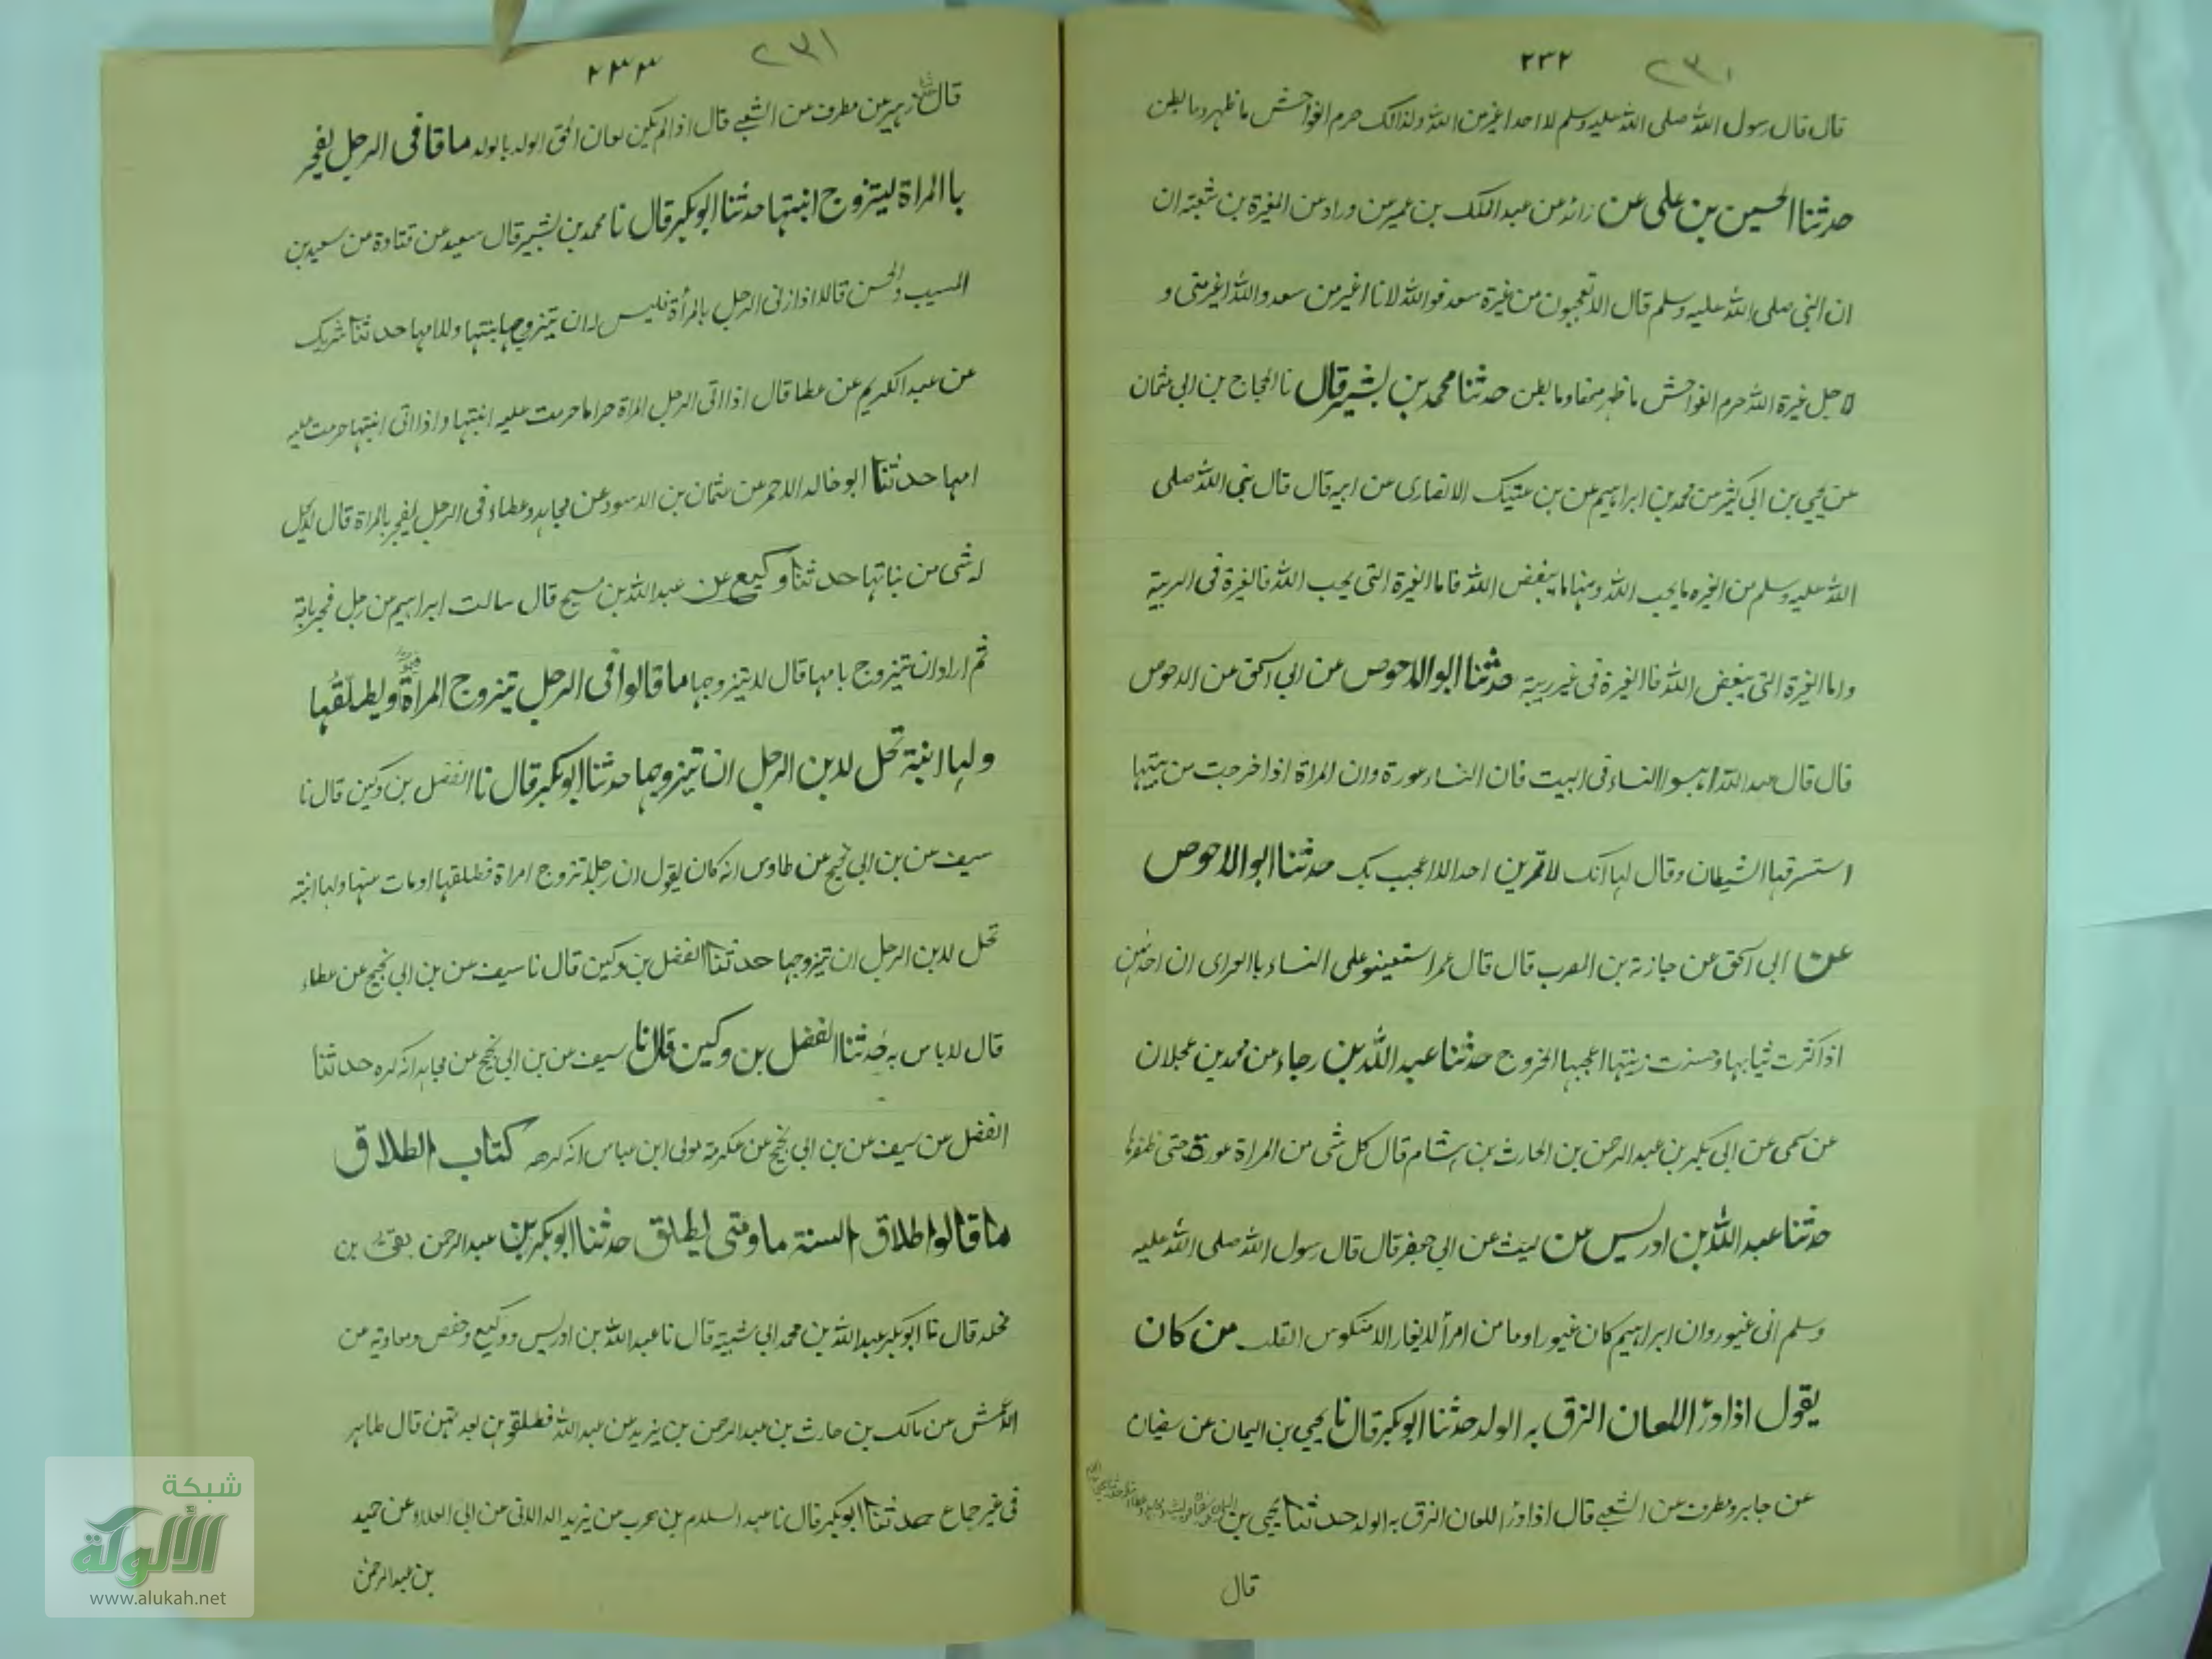 ٢٣٢ ٢٣١
قال قال رسول الله صلى الله عليه وسلم لا احد اغير من الله ولذالك حرم الفواحش ما ظهر وما بطن
حدثنا الحسين بن على عن زائد عن عبد الملك بن عمير عن وراد عن المغيرة بن شعبة ان
ان النبى صلى الله عليه وسلم قال الا تعجبون من غيرة سعد فوالله لانا اغير من سعد والله اغير منى و
لاجل غيرة الله حرم الفواحش ما ظهر منها وما بطن حدثنا محمد بن بشير قال نا الحجاج بن ابى عثمان
عن يحيى بن ابى كثير عن محمد بن ابراهيم عن بن عتيك الانصارى عن ابيه قال قال نبى الله صلى
الله عليه وسلم من الغيره ما يحب الله ومنها ما يبغض الله فاما الغيرة التى يحب الله فالغيرة فى الريبة
واما الغيرة التى يبغض الله فاالغيرة فى غير ريبة حدثنا ابو الاحوص عن ابى اسحق عن الاحوص
قال قال عبد الله احبسوا النساء فى البيت فان النساء عورة وان المراة اذا خرجت من بيتها
استسرقها الشيطان وقال لها انك لا تمرين احدا الا اعجب بك حدثنا ابو الاحوص
عن ابى اسحق عن جازية بن المضرب قال قال عمر استعينو على النساء باالعراى ان احدهن
اذا كثرت ثيابها وحسنت زينتها اعجبها الخروج حدثنا عبد الله بن رجاء عن محمد بن عجلان
عن سمى عن ابى بكر بن عبد الرحمن بن الحارث بن هشام قال كل شى من المراة عورة حتى ظفرها
حدثنا عبد الله بن ادريس عن ليث عن ابى جعفر قال قال رسول الله صلى الله عليه
وسلم انى غيور وان ابراهيم كان غيورا وما من امرأ لا يغار الا منكوس القلب من كان
يقول اذا درأ اللعان الزق به الولد حدثنا ابو بكر قال نا يحيى بن اليمان عن سفيان
عن جابر ومطرف عن الشعبى قال اذا درأ اللعان الزق به الولد حدثنا يحيى بن
قال
٢٣٣ ٢٣١
قال زهير عن مطرف عن الشعبى قال اذا لم يكن لعان الحق الولد بالولد ما قا فى الرجل يفجر
باالمراة ليتزوج ابنتها حدثنا ابو بكر قال نا محمد بن بشير قال سعيد عن قتادة عن سعيد بن
المسيب والحسن قالا اذا زنى الرجل بالمرأة فليس له ان يتزوجها بنتها ولا امها حدثنا شريك
عن عبد الكريم عن عطا قال اذا اتى الرجل المراة حراما حرمت عليه ابنتها واذا اتى ابنتها حرمت عليه
امها حدثنا ابو خالد الاحمر عن عثمان بن الاسود عن مجاهد وعطاء فى الرجل يفجر بالمراة قال لا يحل
له شى من بناتها حدثنا وكيع عن عبد الله بن مسيح قال سالت ابراهيم عن رجل فجر بامة
ثم اراد ان يتزوج بامها قال لا يتزوجها ما قالوا فى الرجل يتزوج المراة ويطلقها
ولها ابنة تحل لابن الرجل ان يتزوجها حدثنا ابو بكر قال نا الفضل بن وكين قال نا
سيف عن بن ابى نجيح عن طاوس انه كان يقول ان رجلا تزوج امراة فطلقها او مات عنها ولها ابنة
تحل لابن الرجل ان يتزوجها حدثنا الفضل بن وكين قال نا سيف عن بن ابى نجيح عن عطاء
قال لاباس به حدثنا الفضل بن وكين قال نا سيف عن بن ابى نجيح عن مجاهد انه كره حدثنا
الفضل عن سيف عن بن ابى نجيح عن عكرمة مولى ابن عباس انه كرهه كتاب الطلاق
ما قالوا طلاق السنة ما ومتى يطلق حدثنا ابو بكر بن عبد الرحمن بقى بن
مخلد قال نا ابو بكر عبد الله بن محمد ابى شيبة قال نا عبد الله بن ادريس ووكيع وحفص ومعاوية عن
الاعمش عن مالك بن حارث بن عبد الرحمن بن يزيد عن عبد الله فطلقوهن لعدتهن قال طاهر
فى غير جماع حدثنا ابو بكر قال نا عبد السلام بن حرب عن يزيد الدالانى عن ابى العلاء عن حميد
بن عبد الرحمن
شبكة
الألوكة
www.alukah.net